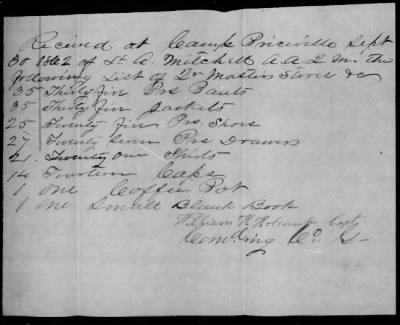 Received at Camp Priceville Sept
30 1862 of Lt. A. Mitchell A.A.Q.M. the
following List of Qr Masters Stores &c
35 Thirty five Prs Pants
35 Thirty five Jackets
25 Twenty five Prs Shoes
27 Twenty Seven Prs Drawers
21. Twenty one Shirts
14 Fourteen Caps
1 one Coffee Pot
1 one Small Blank Book
William H Holcombe Capt
Comdg Co